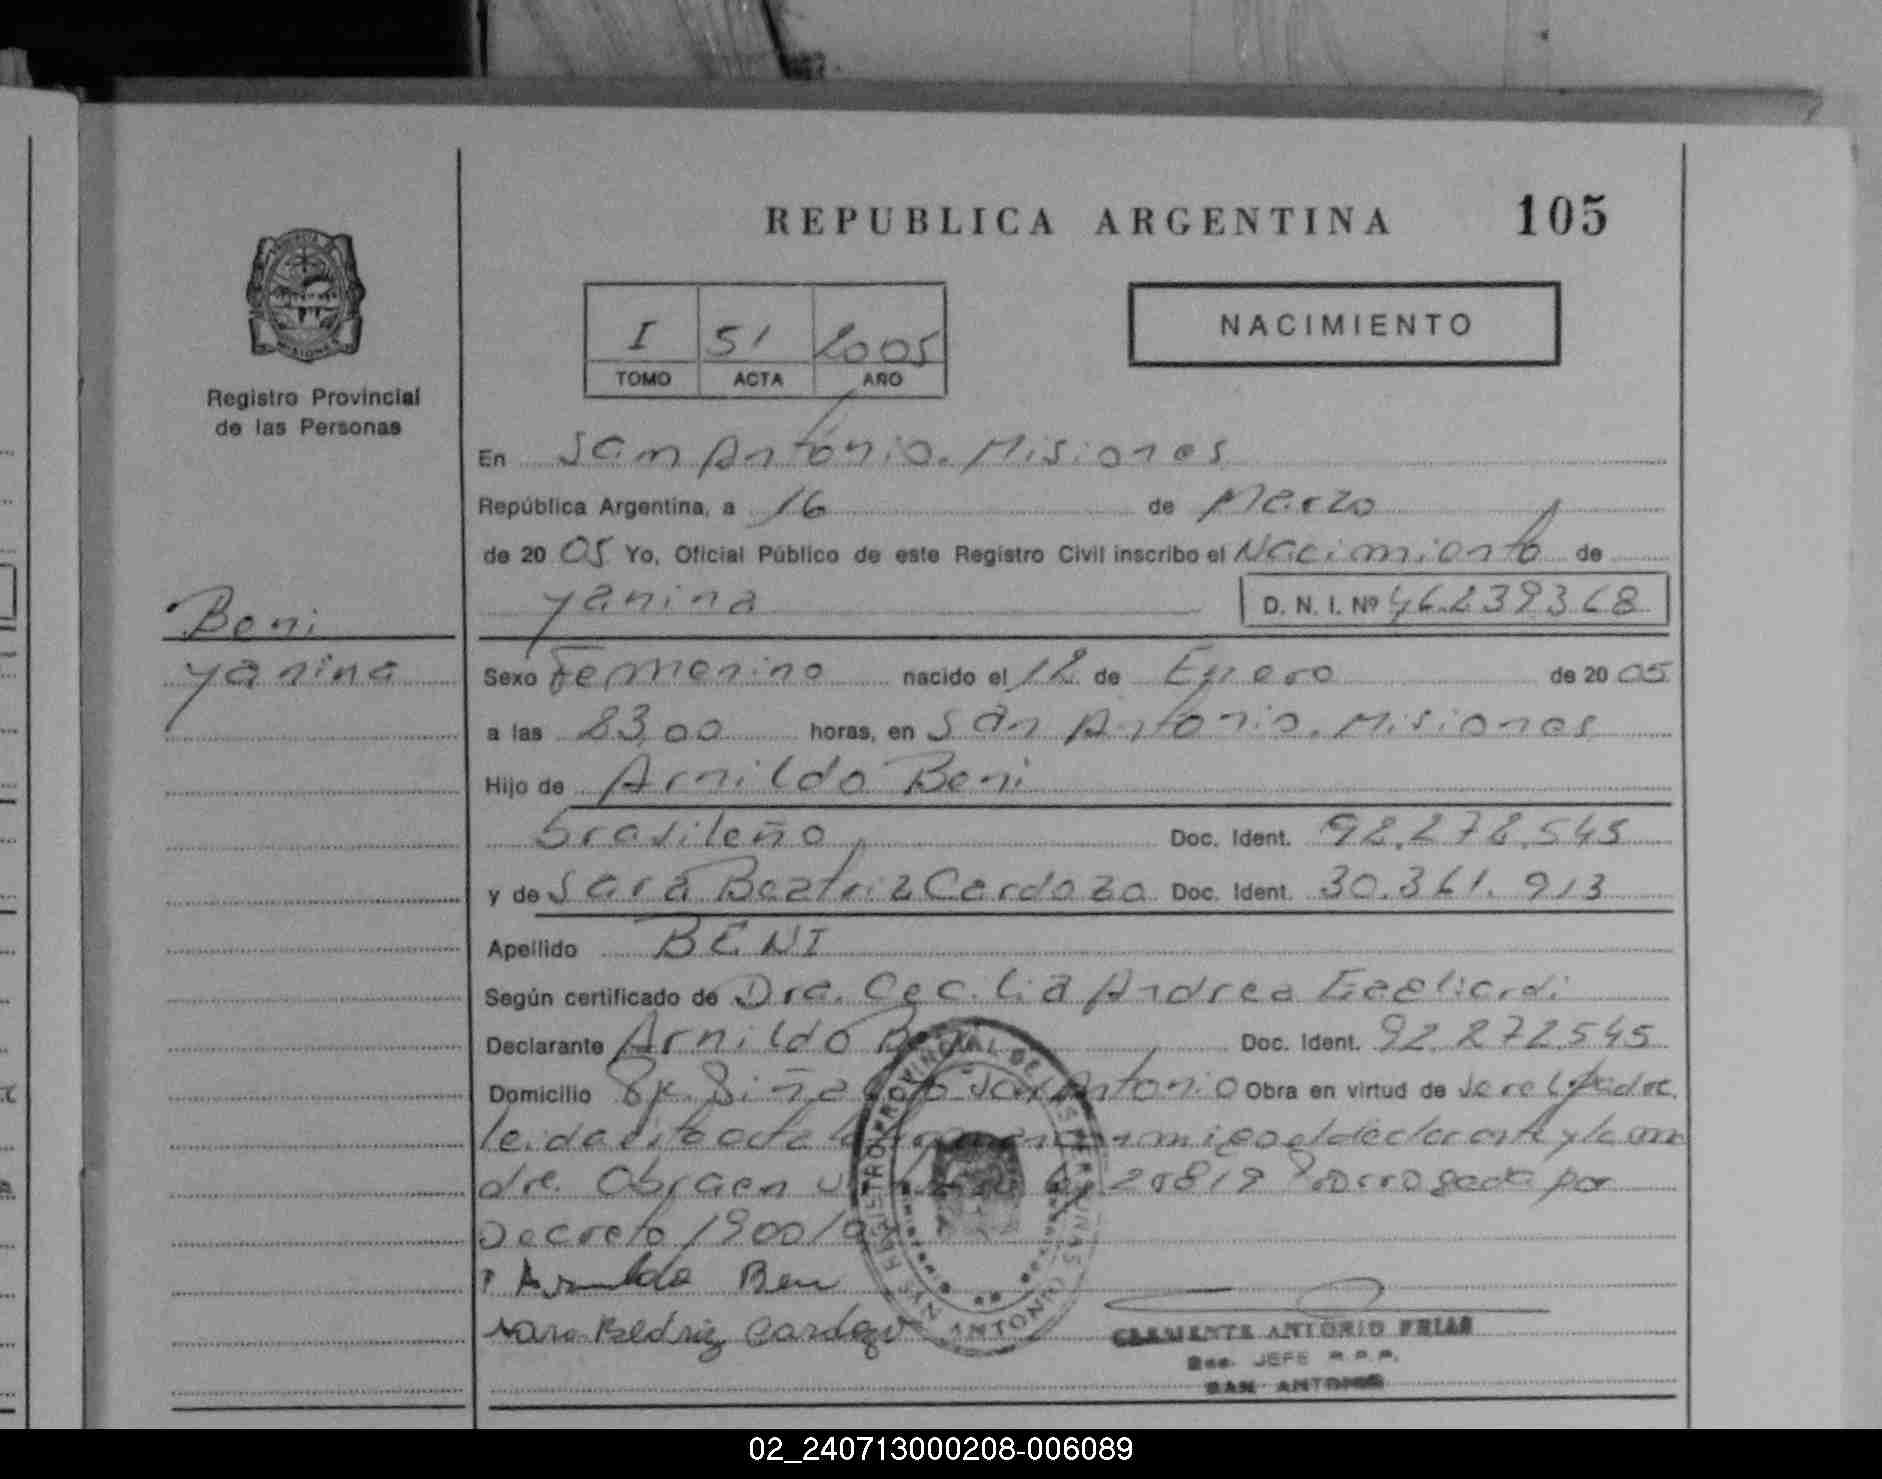 REPUBLICA ARGENTINA 105
Registro Provincial
de las Personas
I 51 2005
TOMO ACTA AÑO
NACIMIENTO
En San Antonio. Misiones
República Argentina, a 16 de Marzo
de 20 05 Yo, Oficial Público de este Registro Civil inscribo el Nacimiento de
Yanina D. N. I. Nº 46.239368
Beni
Yanina
Sexo Femenino nacido el 12 de Enero de 20 05
a las 23,00 horas, en San Antonio. Misiones
Hijo de Arnildo Beni
brasileño Doc. Ident. 92.272.545
y de Sara Beatriz Cardozo Doc. Ident. 30.361.913
Apellido BENI
Según certificado de Dra. Cecilia Andrea Gagliardi
Declarante Arnildo Doc. Ident. 92.272545
Domicilio San Antonio Obra en virtud de ser el padre,
leida esta acta el declarante y la ma
dre. Obra en 20819 Prorrogada por
Decreto 1900/
Arnildo Beni
Sara Beatriz Cardozo
REGISTRO PROVINCIAL DE LAS PERSONAS
SAN ANTONIO
CLEMENTE ANTONIO FRIAS
JEFE R.P.P.
SAN ANTONIO
02_240713000208-006089